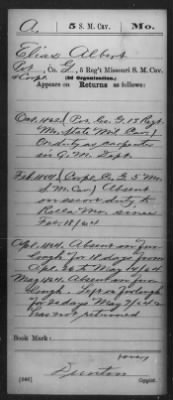 A. 5 S. M. Cav. Mo.
Elias Albert
Pvt., Co. G, 5 Reg't Missouri S. M. Cav.
& Corpl (Old Organization.)
Appears on Returns as follows:
Oct. 1862 (Pvt. Co. G 13 Regt
Mo. State Mil Cav)
On duty as carpenter
in Q. M. Dept.
Feb. 1864 (Corpl Co. G 5 Mo.
S M Cav) Absent
on escort duty to
Rolla Mo. since
Feb. 18/64
Apl. 1864. Absent on fur
lough for 18 days from
Apl.
May 1864. Absent on fur
lough. Left on furlough
for 20 days
has not returned
Book Mark:
(546) Dunton Copyist.